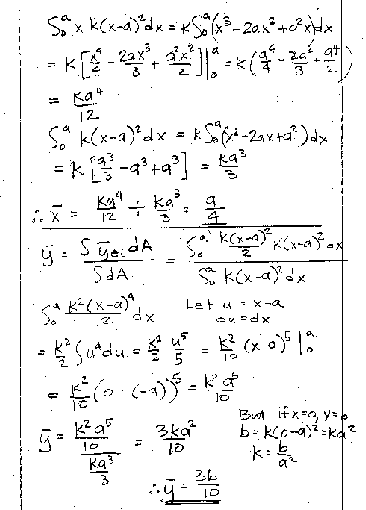 ∫₀ᵃ x k(x-a)²dx = k∫₀ᵃ(x³-2ax²+a²x)dx
= k[x⁴/4 - 2ax³/3 + a²x²/2]|₀ᵃ = k(a⁴/4 - 2a⁴/3 + a⁴/2)
= ka⁴/12
∫₀ᵃ k(x-a)²dx = k∫₀ᵃ(x²-2ax+a²)dx
= k[a³/3 - a³ + a³] = ka³/3
∴ x̄ = ka⁴/12 ÷ ka³/3 = a/4
ȳ = ∫ȳel dA / ∫dA = ∫₀ᵃ k(x-a)²/2 k(x-a)² dx / ∫₀ᵃ k(x-a)² dx
∫₀ᵃ k²(x-a)⁴/2 dx Let u = x-a
du = dx
= k²/2 ∫u⁴du = k²/2 u⁵/5 = k²/10 (x-a)⁵|₀ᵃ
= k²/10 (0-(-a))⁵ = k²a⁵/10
But if x=0, y=b
b = k(0-a)² = ka²
k = b/a²
ȳ = k²a⁵/10 / ka³/3 = 3ka²/10
∴ ȳ = 3b/10